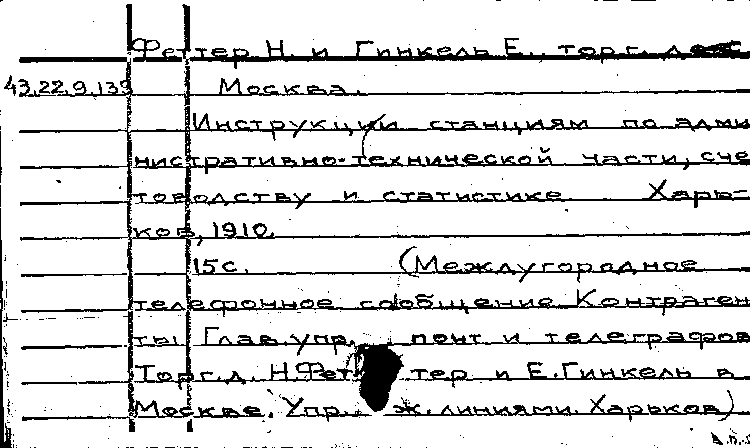 Феттер Н. и Гинкель Е., торг. д.
43.22.9.139 Москва.
Инструкции станциям по адми
нистративно-технической части, сче
товодству и статистике Харь-
ков, 1910.
15с. (Междугородное
телефонное сообщение Контраген
ты Глав. упр. почт и телеграфов
Торг. д. Н. Феттер и Е. Гинкель в
Москве. Упр. ж. линиями. Харьков)